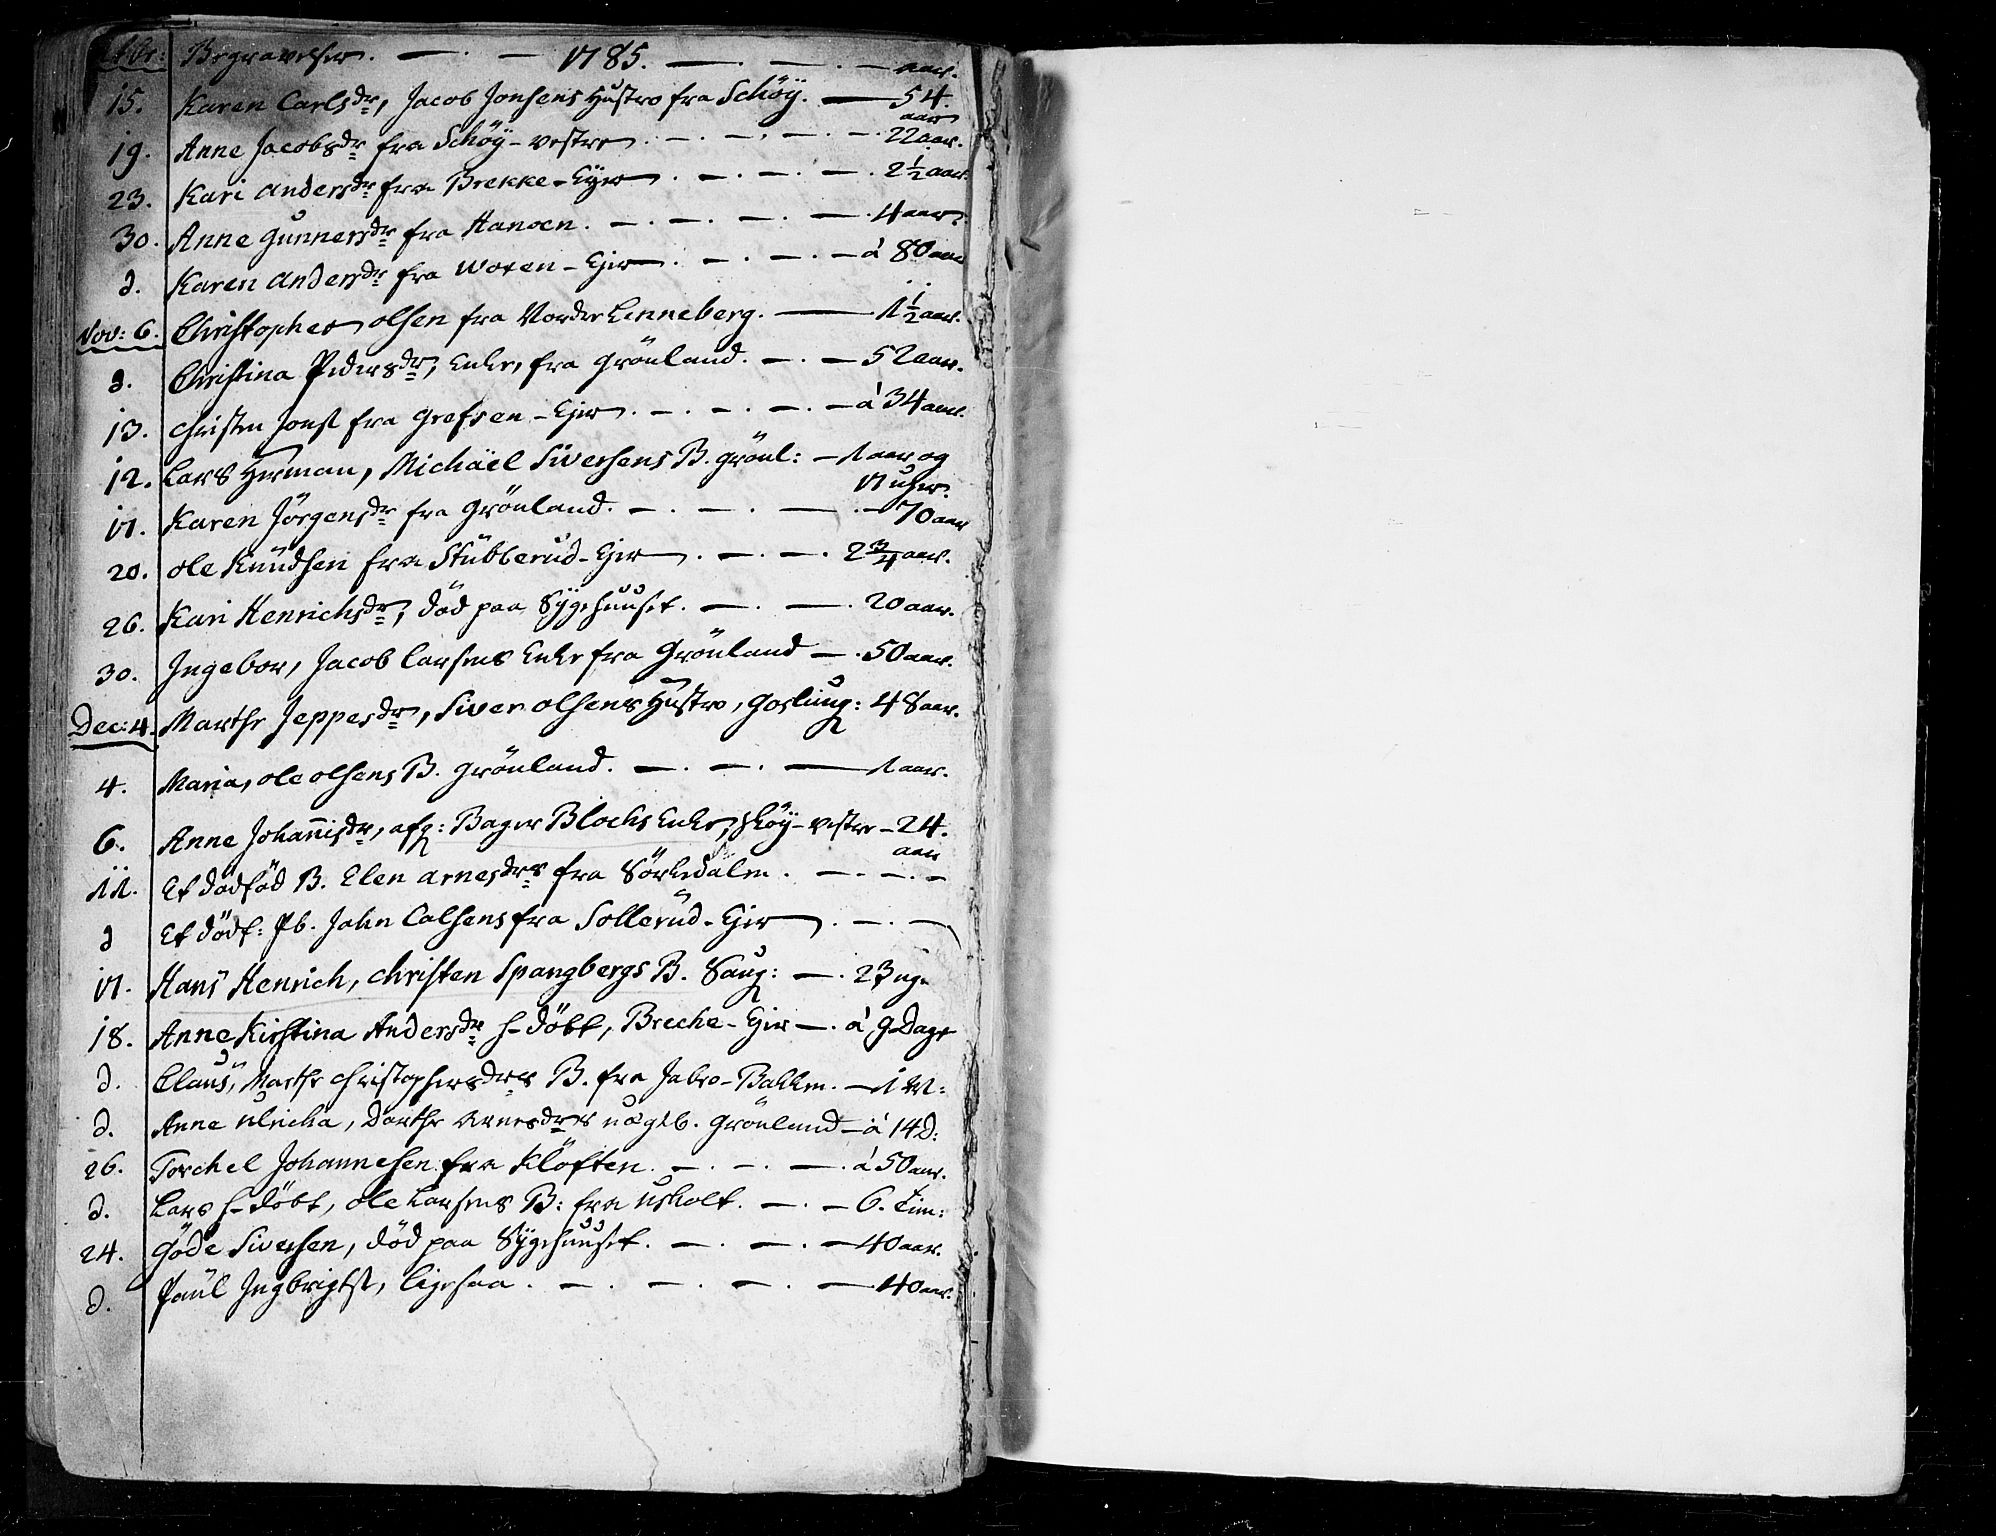 Octbr: Begravelser. — . — 1785. — . — . — aar.
15. Karen Carlsdr, Jacob Jonsens Hustro fra Schöÿ. — 54. aar
19. Anne Jacobsdr fra Schöÿ-vestre . — . — . — . 22 aar.
23. Kari Andersdr fra Brekke-Eyer . — . — . — . 2 1/2 aar.
30. Anne Gunnersdr fra Hanoen. — . — . — . — . 4 aar.
d. Karen Andersdr fra Woxen-Ejer . — . — . — á 80 aar
Nov: 6. Christopher Olsen fra Nordre Linneberg. — 1 1/2 aar.
d. Christina Pedersdr, Enke, fra Grönland. — . — 52 aar.
13. Christen Jonss fra Grefsen-Ejer . — . — . — á 34 aar.
12. Lars Herman, Michäel Siversens B. Grönl: — 1 aar og
17 uger.
17. Karen Jörgensdr fra Grönland. — . — . — . — 70 aar
20. Ole Knüdsen fra Stübberud-Ejer . — . — . 2 3/4 aar.
26. Kari Henrichsdr, död paa Sÿgehuuset. — . — . 20 aar.
30. Ingebor, Jacob Larsens Enke fra Grönland — . 50 aar.
Dec: 4. Marthe Jeppesdr, Siver Olsens Hustro, Goslung: 48 aar.
4. Maria, Ole Olsens B. Grönland. — . — . — 1 aar.
6. Anne Johannisdr, afg: Bager Blochs Enke, Schöÿ-vestre — 24.
aar
11. Et dödföd B. Elen Arnesdrs fra Sörkedalen . — . — . —
d Et dödf: Pb. John Colsens fra Sollerud-Ejer . — . —
17. Hans Henrich, Christen Spangbergs B. Saug: — . 23 ug.
18. Anne Kirstina Andersdr h-döbt, Breche-Ejer — . á 9 Dage
d. Claus, Marthe Christophersdrs B. fra Jabro-Bakken. — 1 M:
d. Anne Ulricha, Dorthe Arnesdrs uægtb. Grönland — á 14 D:
26. Torchel Johannesen fra Klöften. — . — . — . á 50 aar.
d. Lars h-döbt, Ole Larsens B: fra Usholt. — . — 6. Tim:
24. Göde Siversen, död paa Sÿgehuuset. — . — . — 40 aar.
d. Paül Ingbrigtss, ligesaa . — . — . — . — 40 aar.